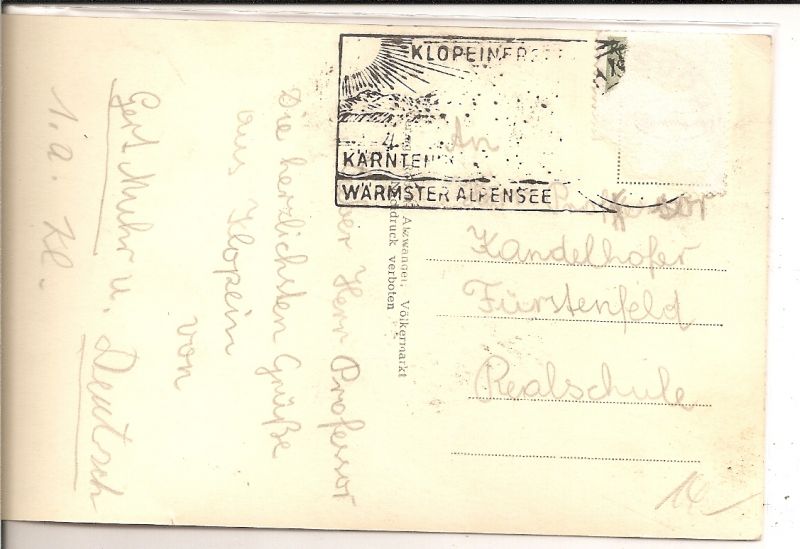 KLOPEINERS
KÄRNTEN
WÄRMSTER ALPENSEE
An
Professor
Kandelhofer
Fürstenfeld
Realschule
14
Alzwanger, Völkermarkt
druck verboten
Herr Professor
Die herzlichsten Grüße
aus Klopein
von
Gert Muhr u. Deutsch
1. a. Kl.